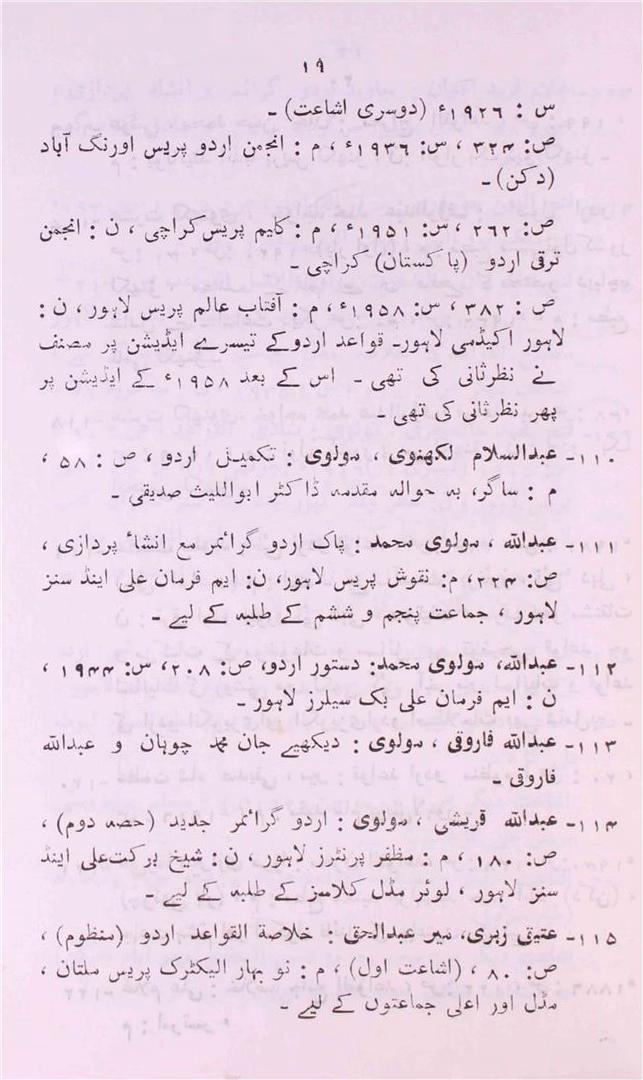 ۱۹
س : ۱۹۲۶ء (دوسری اشاعت) ۔
ص: ۳۲۴ ، س: ۱۹۳۶ء ، م : انجمن اردو پریس اورنگ آباد
(دکن) ۔
ص: ۲۶۲ ، س: ۱۹۵۱ء ، م : کلیم پریس کراچی ، ن : انجمن
ترقی اردو (پاکستان) کراچی ۔
ص : ۳۸۲ ، س: ۱۹۵۸ء ، م : آفتاب عالم پریس لاہور ، ن :
لاہور اکیڈمی لاہور۔ قواعد اردو کے تیسرے ایڈیشن پر مصنف
نے نظرثانی کی تھی ۔ اس کے بعد ۱۹۵۸ء کے ایڈیشن پر
پھر نظرثانی کی تھی ۔
۱۱۰۔ عبدالسلام لکھنوی ، مولوی : تکمیل اردو ، ص : ۵۸ ،
م : ساگر، بہ حوالہ مقدمہ ڈاکٹر ابواللیث صدیقی ۔
۱۱۱۔ عبداللہ ، مولوی محمد : پاک اردو گرائمر مع انشاء پردازی ،
ص: ۲۲۴، م: نقوش پریس لاہور، ن: ایم فرمان علی اینڈ سنز
لاہور ، جماعت پنجم و ششم کے طلبہ کے لیے ۔
۱۱۲۔ عبداللہ، مولوی محمد: دستور اردو، ص: ۲۰۸، س: ۱۹۴۴ ،
ن : ایم فرمان علی بک سیلرز لاہور ۔
۱۱۳۔ عبداللہ فاروقی ، مولوی : دیکھیے جان محمد چوہان و عبداللہ
فاروقی ۔
۱۱۴۔ عبداللہ قریشی ، مولوی : اردو گرائمر جدید (حصہ دوم) ،
ص: ۱۸۰ ، م : مظفر پرنٹرز لاہور ، ن : شیخ برکت علی اینڈ
سنز لاہور ، لوئر مڈل کلاسز کے طلبہ کے لیے ۔
۱۱۵۔ عتیق زبری، میر عبدالحق : خلاصۃ القواعد اردو (منظوم) ،
ص: ۸۰ ، (اشاعت اول) ، م : نو بہار الیکٹرک پریس ملتان ،
مڈل اور اعلیٰ جماعتوں کے لیے ۔